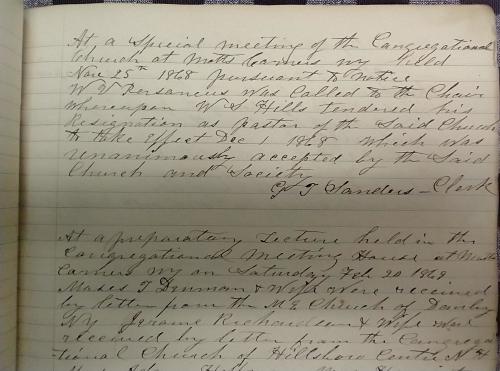 At a Special meeting of the Congregational
Church at Motts Corners NY held
Nov 25th 1868 pursuant to notice
W Personius was called to the Chair
whereupon W S Hills tendered his
Resignation as pastor of the Said Church
to take Effect Dec 1 1868 which was
unanimously accepted by the Said
Church and Society
G T Sanders - Clerk
At a preparatory Lecture held in the
Congregational Meeting House at Motts
Corners NY on Saturday Feb 20 1869
Moses T Denman & Wife were received
by letter from the M E Church of Danby
NY Jerome Richardson & Wife were
received by letter from the Congrega
-tional Church of Hillsboro Centre N H